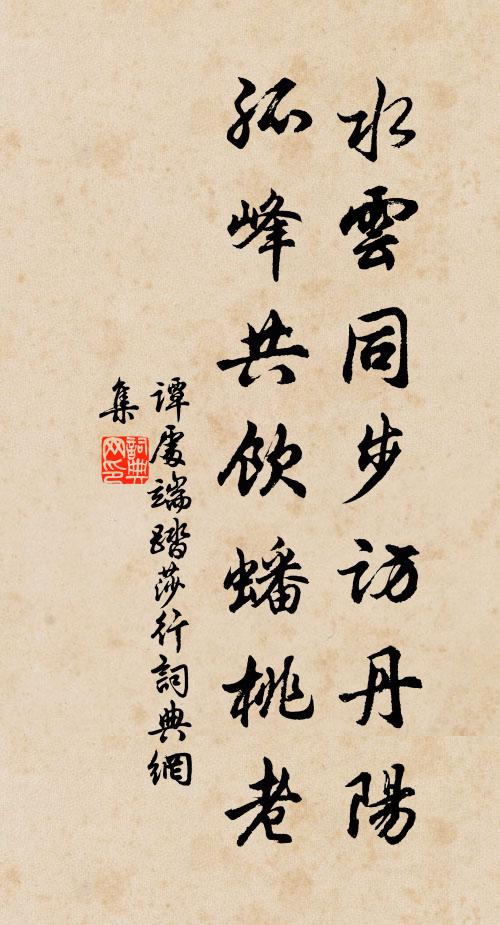 水雲同步訪丹陽
孤峰共飲蟠桃老
譚處端踏莎行詞典網
集
詞典
网印